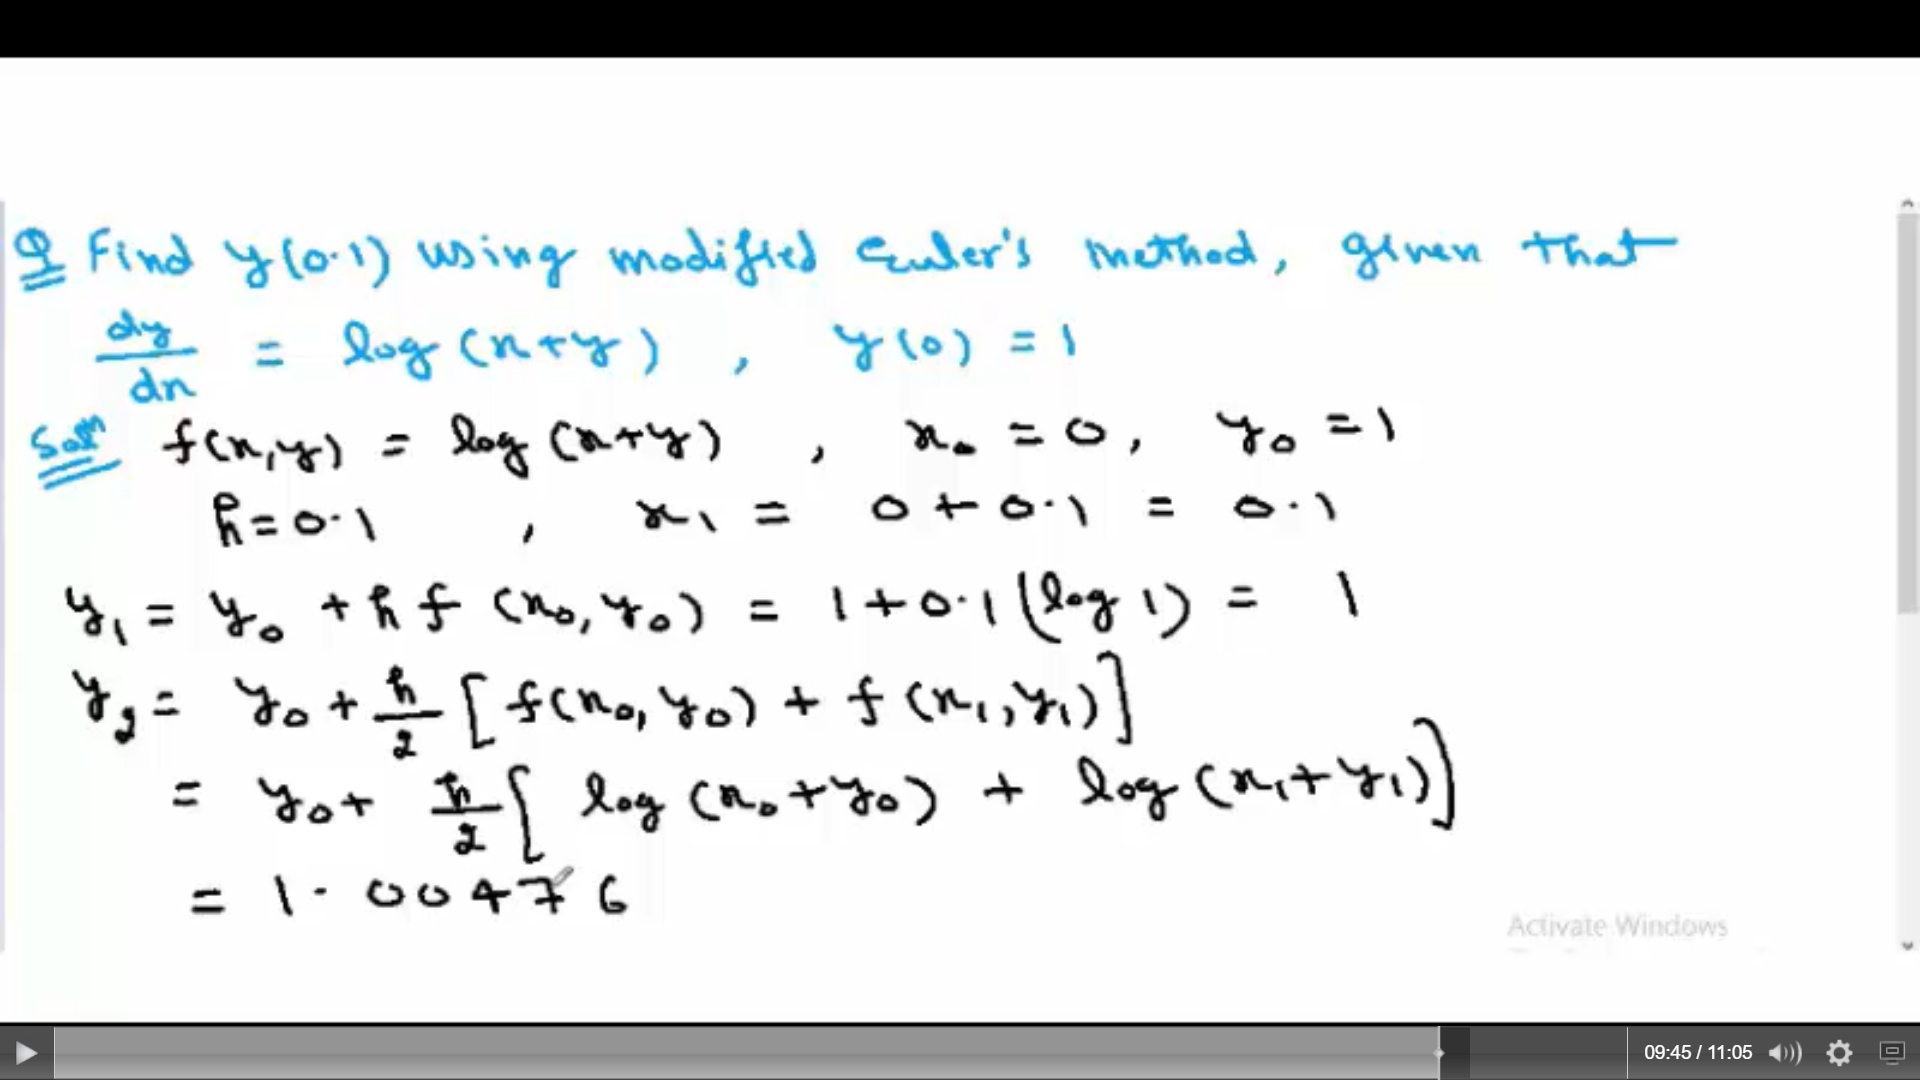 Q Find y(0.1) using modified Euler's method, given that
dy/dx = log(x+y) , y(0) = 1
Soln f(x,y) = log(x+y) , x₀ = 0, y₀ = 1
h = 0.1 , x₁ = 0 + 0.1 = 0.1
y₁ = y₀ + h f (x₀, y₀) = 1 + 0.1 (log 1) = 1
y₂ = y₀ + h/2 [f(x₀, y₀) + f (x₁, y₁)]
= y₀ + h/2 [log (x₀ + y₀) + log (x₁ + y₁)]
= 1.00476
Activate Windows
09:45 / 11:05